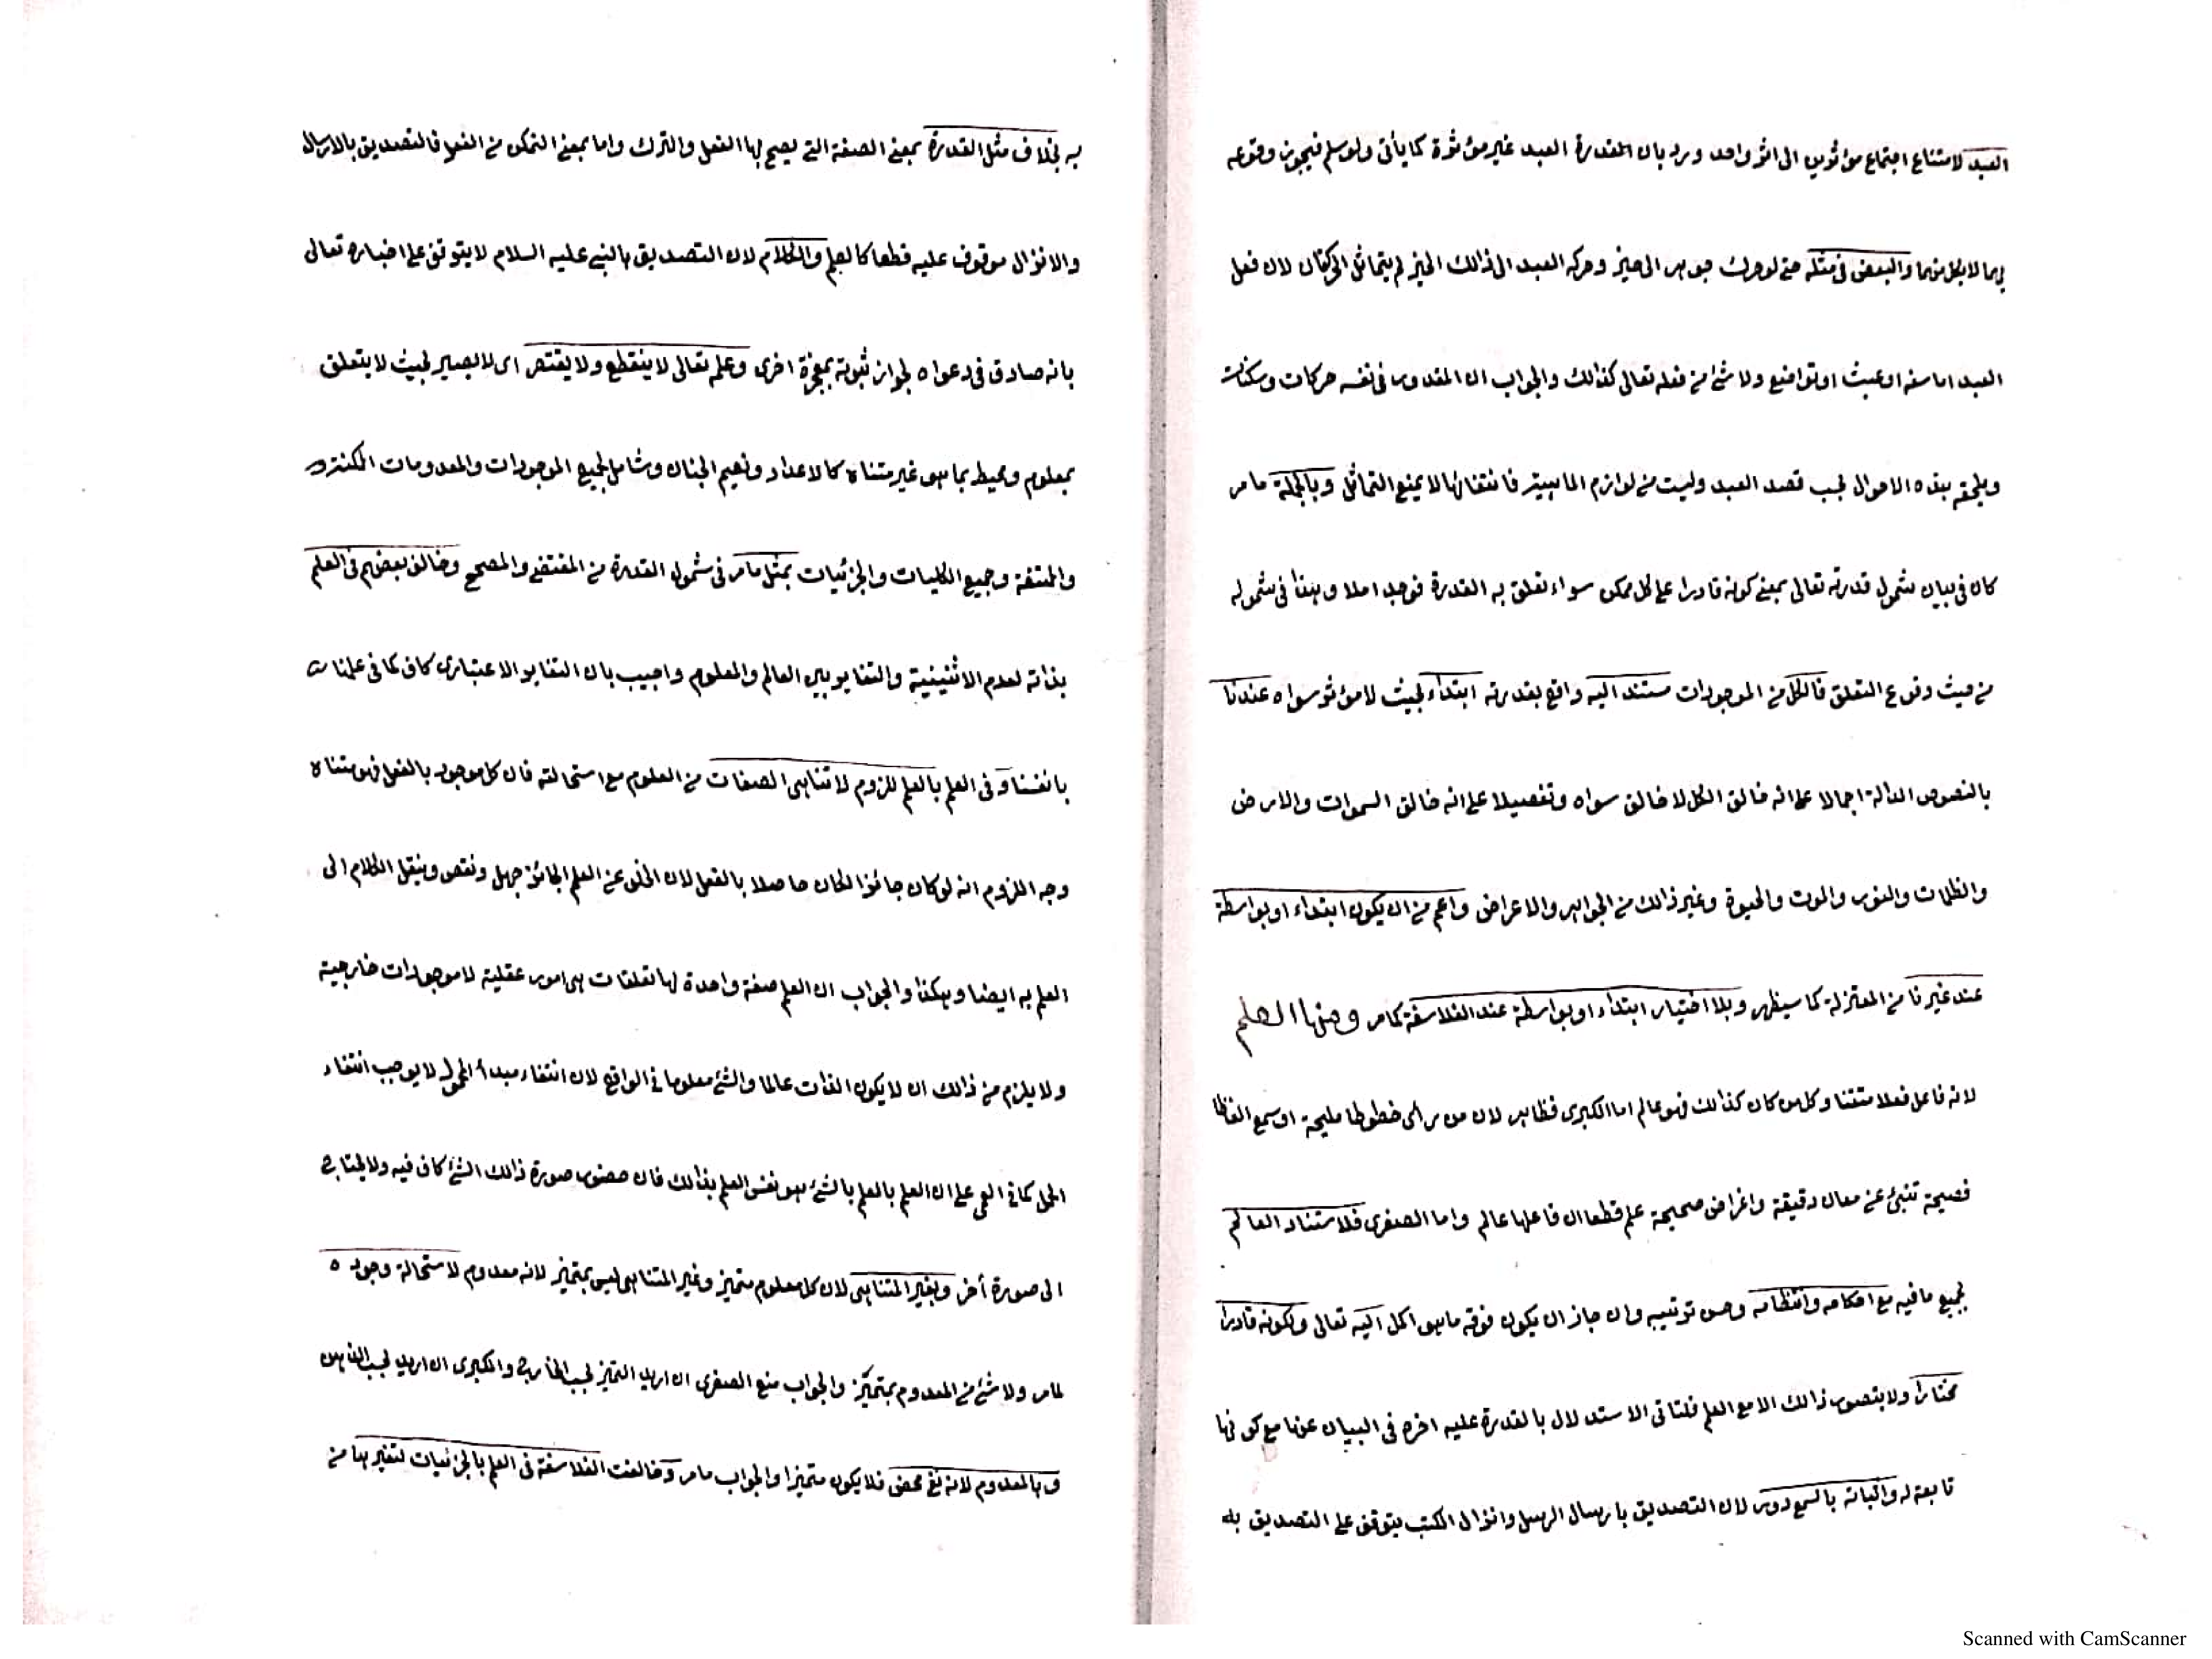 العبد لامتناع اجتماع مؤثرين الى اثر واحد ورد بان القدرة العبد غير مؤثرة كما يأتى ولو سلم فيجوز وقوعه
بهما لا بكل منهما والبعض فى مثله حتى لو حرك جوهر الى حيز وحركه العبد الى ذالك الحيز لم يتماثل الحركتان لان فعل
العبد اما سفه او عبث او تواضع ولا شئ من فعله تعالى كذالك والجواب ان المقدور فى نفسه حركات وسكنات
ويلحقه بهذه الاحوال بحسب قصد العبد وليست من لوازم الماهية فانتفائها لا يمنع التماثل وبالجملة ما مر
كان فى بيان شمول قدرته تعالى بمعنى كونه قادرا على كل ممكن سواء تعلق به القدرة فوجد ام لا وهذا فى شموله
من حيث وقوع التعلق فالكل من الموجودات مستند اليه واقع بقدرته ابتداء بحيث لا مؤثر سواه عندنا
بالنصوص الدالة اجمالا على انه خالق الكل لا خالق سواه وتفصيلا على انه خالق السموات والارض
والظلمات والنور والموت والحيوة وغير ذالك من الجواهر والاعراض واعم من ان يكون ابتداء او بواسطة
عند غيرنا من المعتزلة كما سيظهر وبلا اختيار ابتداء او بواسطة عند الفلاسفة كما مر ومنها العلم
لانه فاعل فعلا متقنا وكل من كان كذالك فهو عالم اما الكبرى فظاهر لان من راى خطوطا مليحة او سمع الفاظا
فصيحة تنبئ عن معان دقيقة واغراض صحيحة علم قطعا ان فاعلها عالم واما الصغرى فلاستناد العالم
بجميع ما فيه مع احكامه وانتظامه وحسن ترتيبه وان جاز ان يكون فوقه ما هو اكمل اليه تعالى ولكونه قادرا
مختارا ولا يتصور ذالك الا مع العلم فلتاتى الاستدلال بالقدرة عليه اخره فى البيان عنها مع كونها
تابعة له واثباته بالسمع دور لان التصديق بارسال الرسل وانزال الكتب يتوقف على التصديق به
به بخلاف مثل القدرة بمعنى الصفة التى يصح لها الفعل والترك واما بمعنى التمكن من الفعل فالتصديق بالارسال
والانزال موقوف عليه قطعا كالعلم والكلام لان التصديق بالنبى عليه السلام لا يتوقف على اخباره تعالى
بانه صادق فى دعواه لجواز ثبوته بمعجزة اخرى وعلمه تعالى لا ينقطع ولا يقتصر اى لا يصير بحيث لا يتعلق
بمعلوم ومحيط بما هو غير متناه كالاعداد ونعيم الجنان وشامل لجميع الموجودات والمعدومات الممكنة
والممتنعة وجميع الكليات والجزئيات بمثل ما مر فى شمول القدرة من المقتضى والمصحح وخالف بعضهم فى العلم
بذاته لعدم الاثنينية والتغاير بين العالم والمعلوم واجيب بان التغاير الاعتبارى كاف كما فى علمنا
بانفسنا و فى العلم بالعلم للزوم لا تناهى الصفات من العلوم مع استحالته فان كل موجود بالفعل فهو متناه
وجه اللزوم انه لو كان جائزا لكان حاصلا بالفعل لان الخلو عن العلم الجائز جهل ونقص وينقل الكلام الى
العلم به ايضا وهكذا والجواب ان العلم صفة واحدة لها تعلقات هى امور عقلية لا موجودات خارجية
ولا يلزم من ذالك ان لا يكون الذات عالما والشئ معلوما فى الواقع لان انتفاء مبدأ المحمول لا يوجب انتفاء
الحمل كما فى العمى على ان العلم بالعلم بالشئ هو نفس العلم بذالك فان حضور صورة ذالك الشئ كاف فيه ولا يحتاج
الى صورة أخر وبغير المتناهى لان كل معلوم متميز وغير المتناهى ليس بمتميز لانه معدوم لاستحالة وجوده
لما مر ولا شئ من المعدوم بمتميّز والجواب منع الصغرى ان اريد التميز بحسب الخارج والكبرى ان اريد بحسب الذهن
وبالمعدوم لانه نفى محض فلا يكون متميزا والجواب ما مر وخالفت الفلاسفة فى العلم بالجزئيات لتغيرها من
Scanned with CamScanner